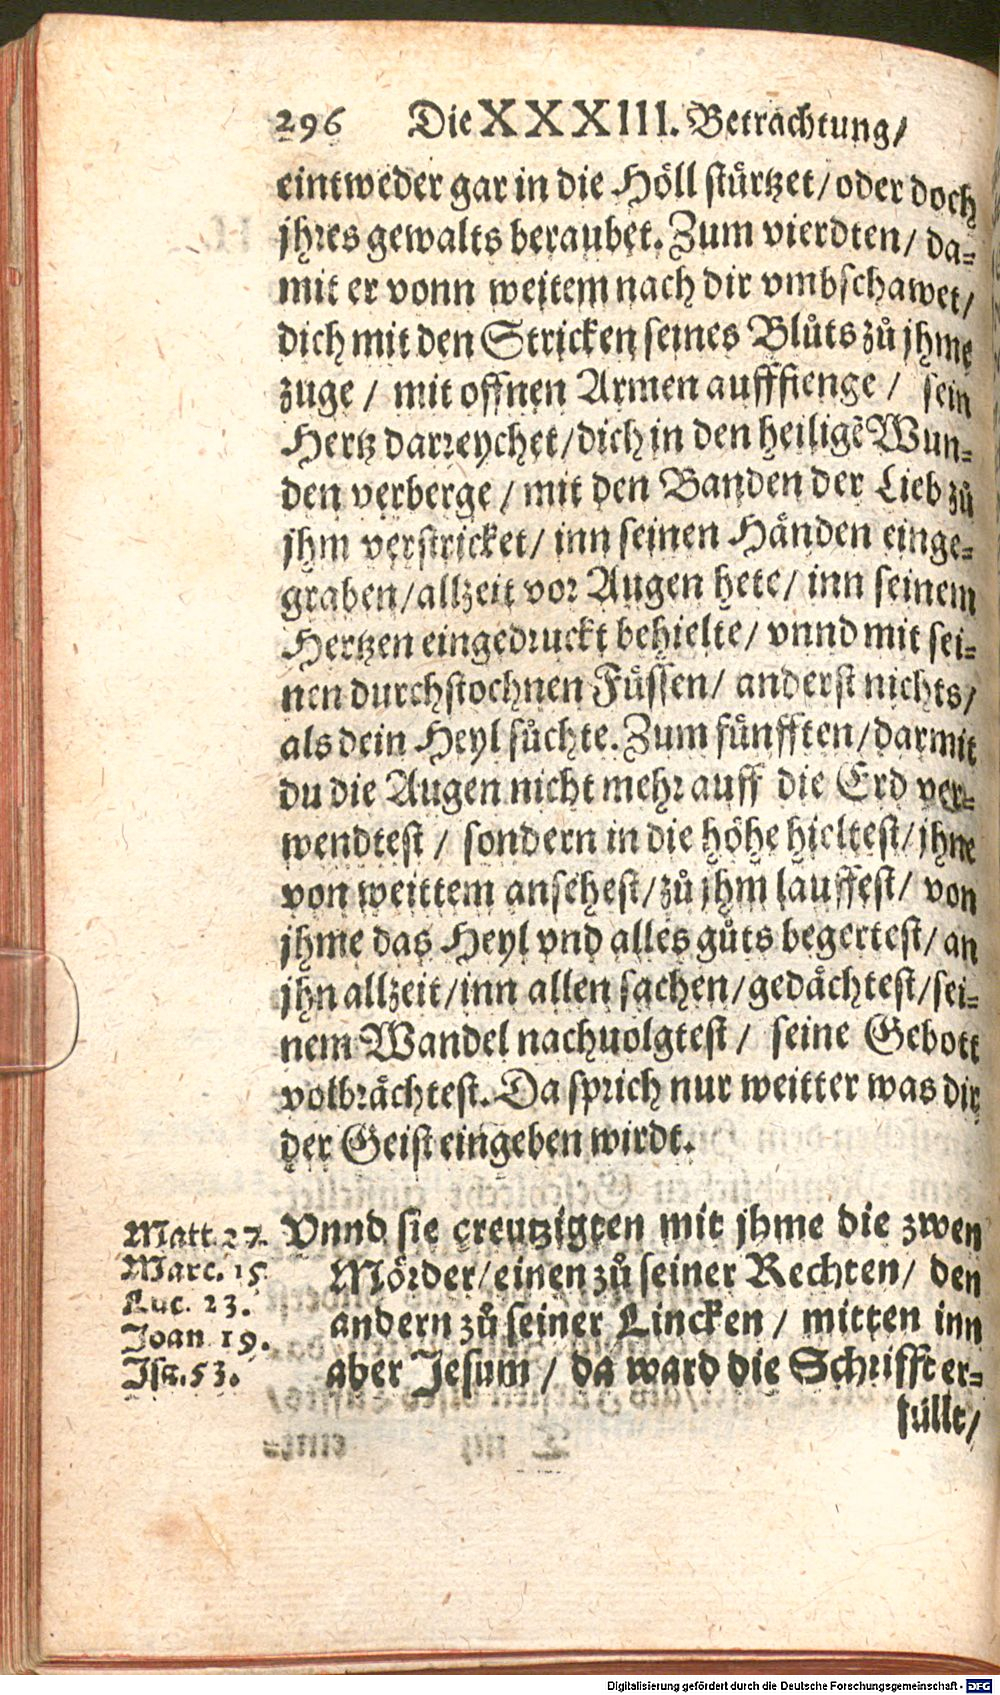 296 Die XXXIII. Betrachtung/
eintweder gar in die Höll stürtzet/oder doch
jhres gewalts beraubet. Zum vierdten/ da-
mit er vonn weitem nach dir vmbschawet/
dich mit den Stricken seines Blůts zů jhme
zuge / mit offnen Armen aufffienge / sein
Hertz darreychet/dich in den heiligẽ Wun-
den verberge / mit den Banden der Lieb zů
jhm verstricket/ inn seinen Händen einge-
graben/allzeit vor Augen hete/ inn seinem
Hertzen eingedruckt behielte/ vnnd mit sei-
nen durchstochnen Füssen/ anderst nichts/
als dein Heyl sůchte. Zum fünfften/darmit
du die Augen nicht mehr auff die Erd ver-
wendtest / sondern in die höhe hieltest/ jhne
von weittem ansehest/zů jhm lauffest/ von
jhme das Heyl vnd alles gůts begertest/ an
jhn allzeit/inn allen sachen/gedächtest/sei-
nem Wandel nachuolgtest / seine Gebott
volbrächtest. Da sprich nur weitter was dir
der Geist eingeben wirdt.
Matt. 27.
Marc. 15.
Luc. 23.
Joan. 19.
Isa. 53.
Vnnd sie creutzigten mit jhme die zwen
Mörder/einen zů seiner Rechten/ den
andern zů seiner Lincken / mitten inn
aber Jesum / da ward die Schrifft er-
füllt/
Digitalisierung gefördert durch die Deutsche Forschungsgemeinschaft - DFG